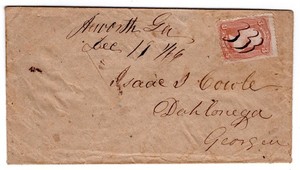 Acworth Ga
Dec 11 '66
Isaac J Cowle
Dahlonega
Georgia